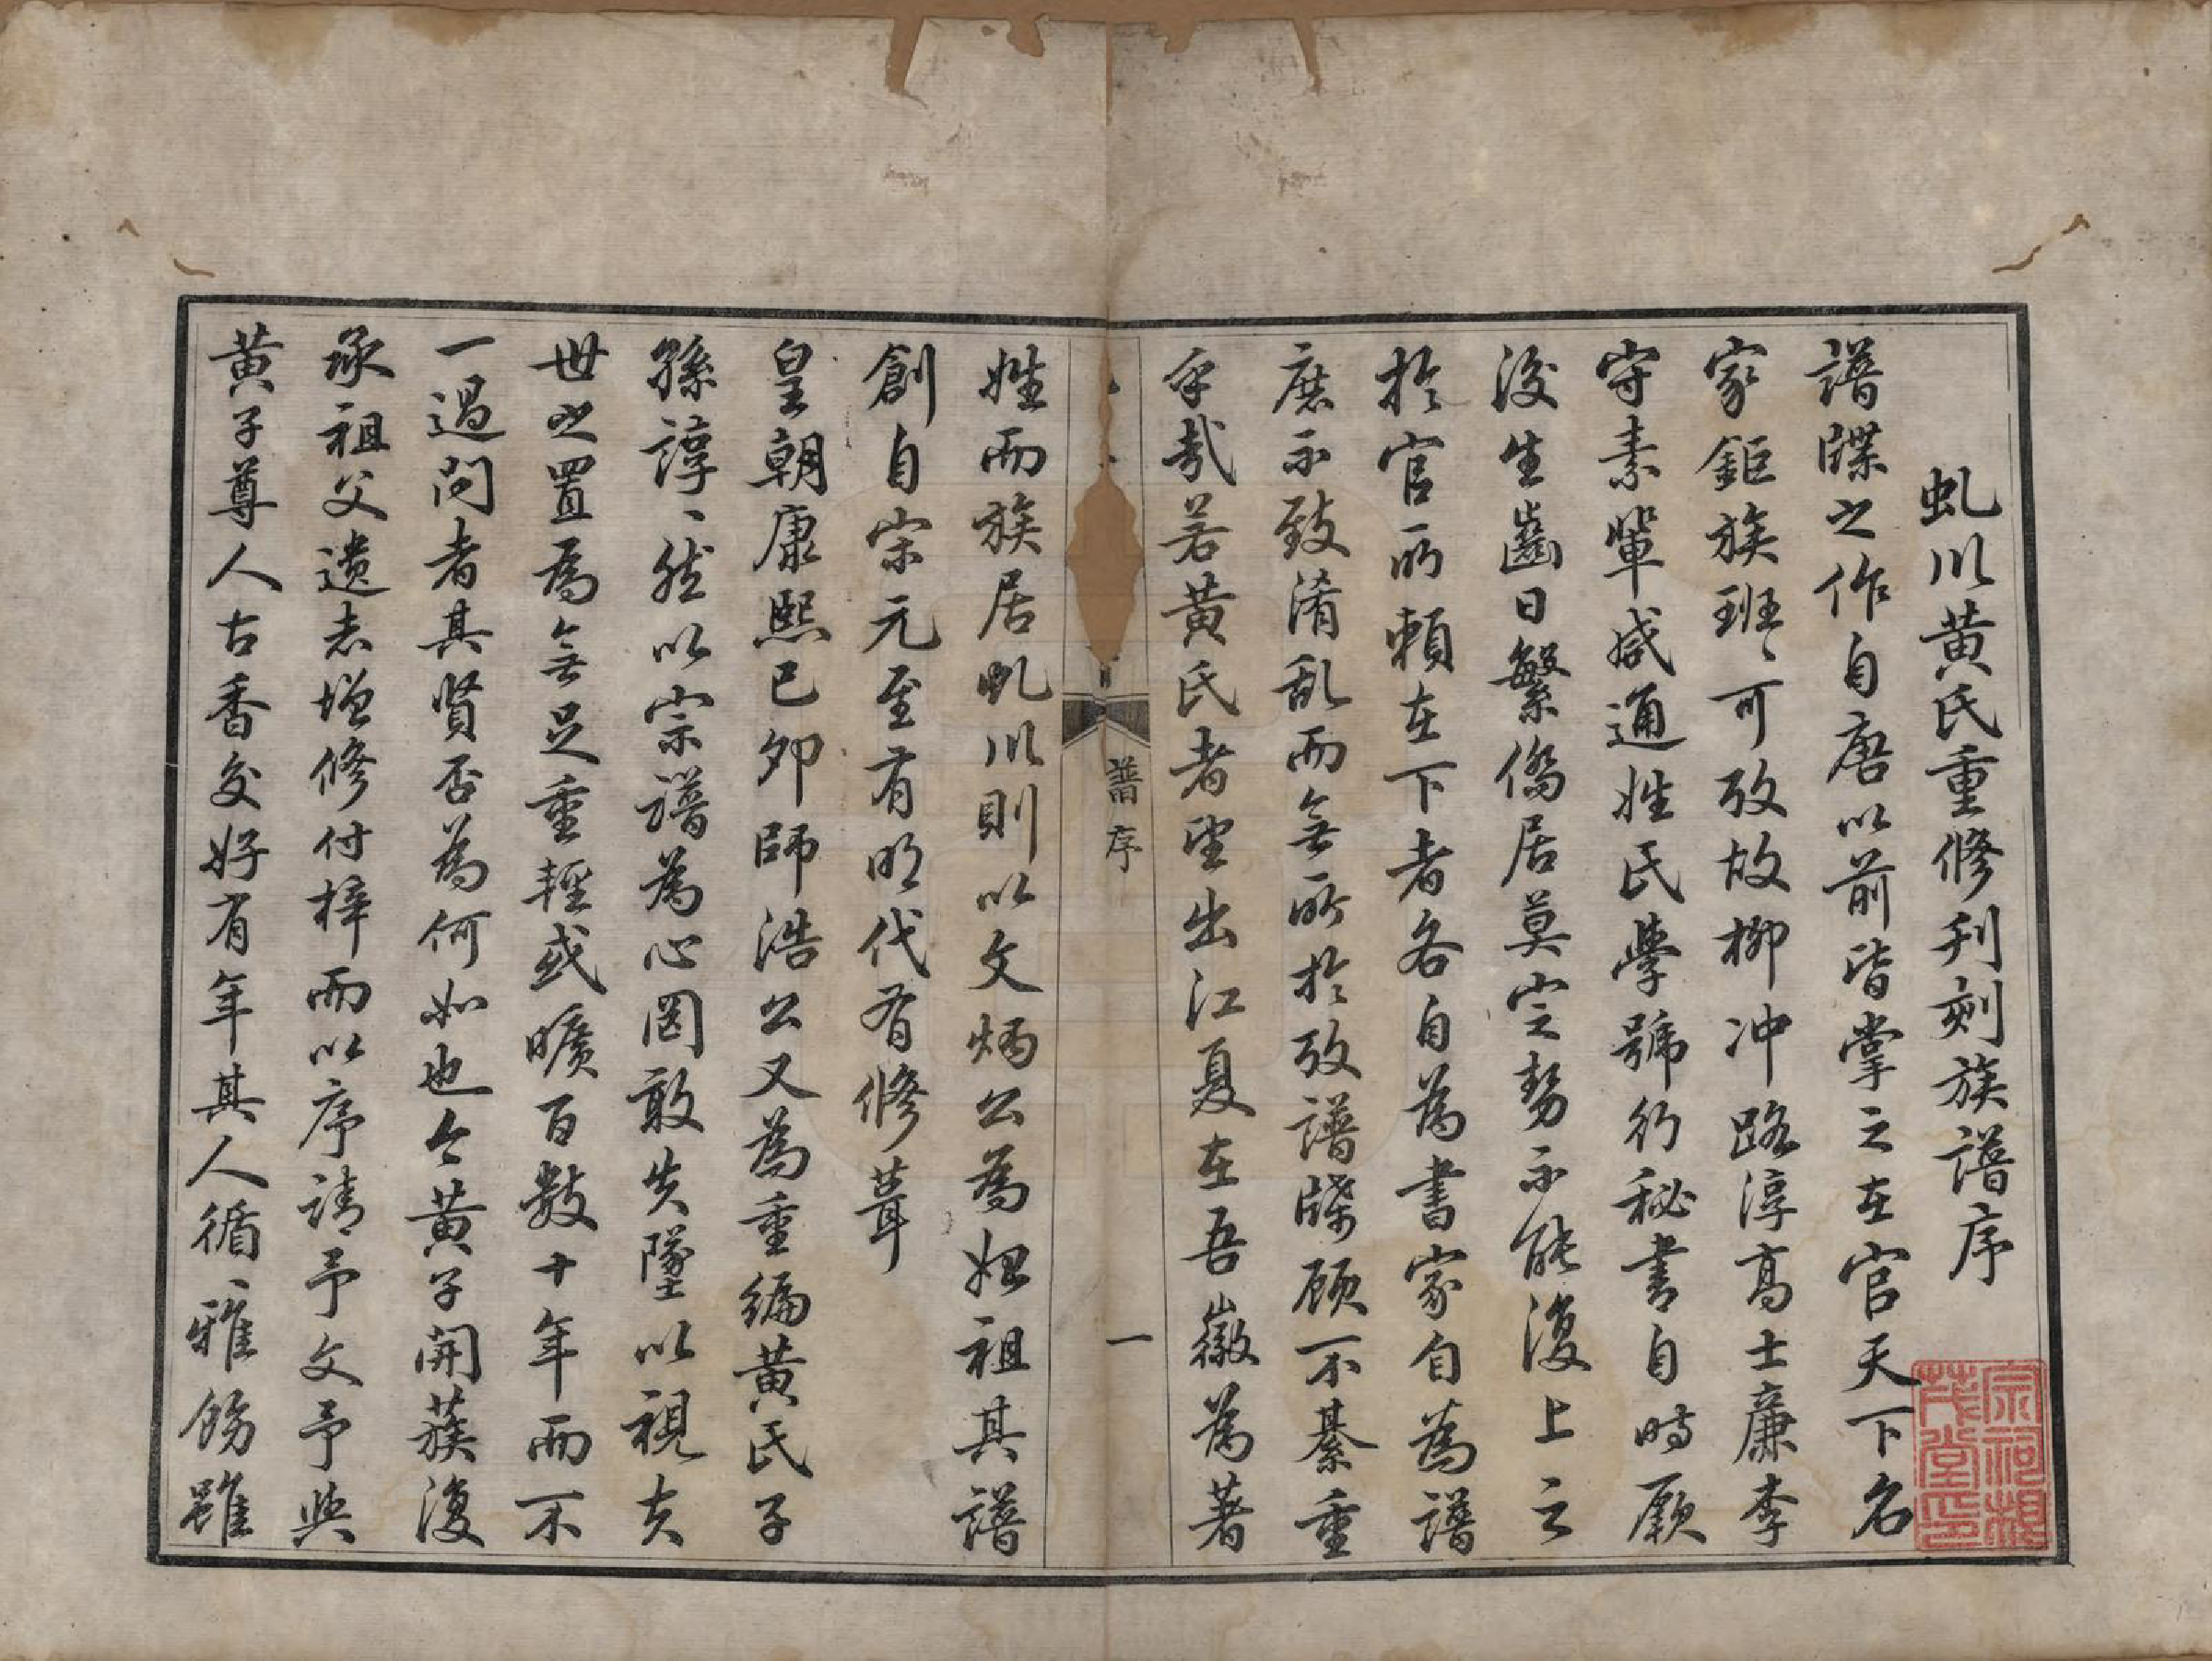 虬川黄氏重修刋刻族譜序
譜牒之作自唐以前皆掌之在官天下名
家鉅族班〻可攷故柳冲路淳高士廉李
守素輩咸通姓氏學號行秘書自時厥
後生齒日繁僑居莫定勢不能復上之
於官所賴在下者各自為書家自為譜
庶不致淆乱而無所於攷譜牒顧不綦重
乎哉若黄氏者望出江夏在吾徽為著
姓而族居虬川則以文炳公為始祖其譜
創自宗元至有明代有修葺
皇朝康熙己卯師浩公又為重編黄氏子
孫諄〻然以宗譜為心罔敢失墜以視夫
世之置為無足重輕或曠百數十年而不
一過問者其賢否為何如也今黄子開蔟復
承祖父遺志增修付梓而以序請予文予與
黄子尊人古香交好有年其人循〻雅飭雖
譜序
一
宗祠
茂堂印